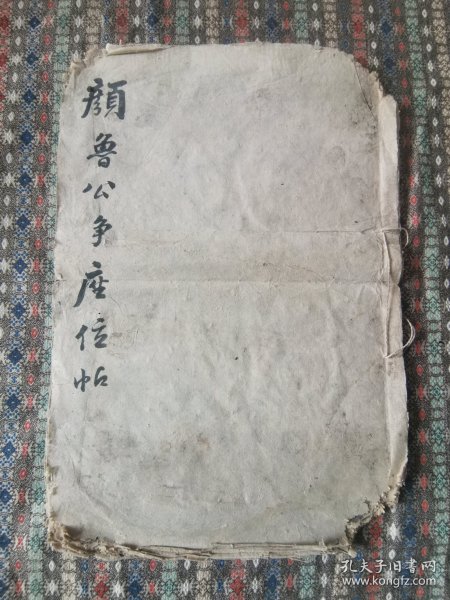 顔魯公争座位帖
孔夫子旧书网
www.kongfz.com